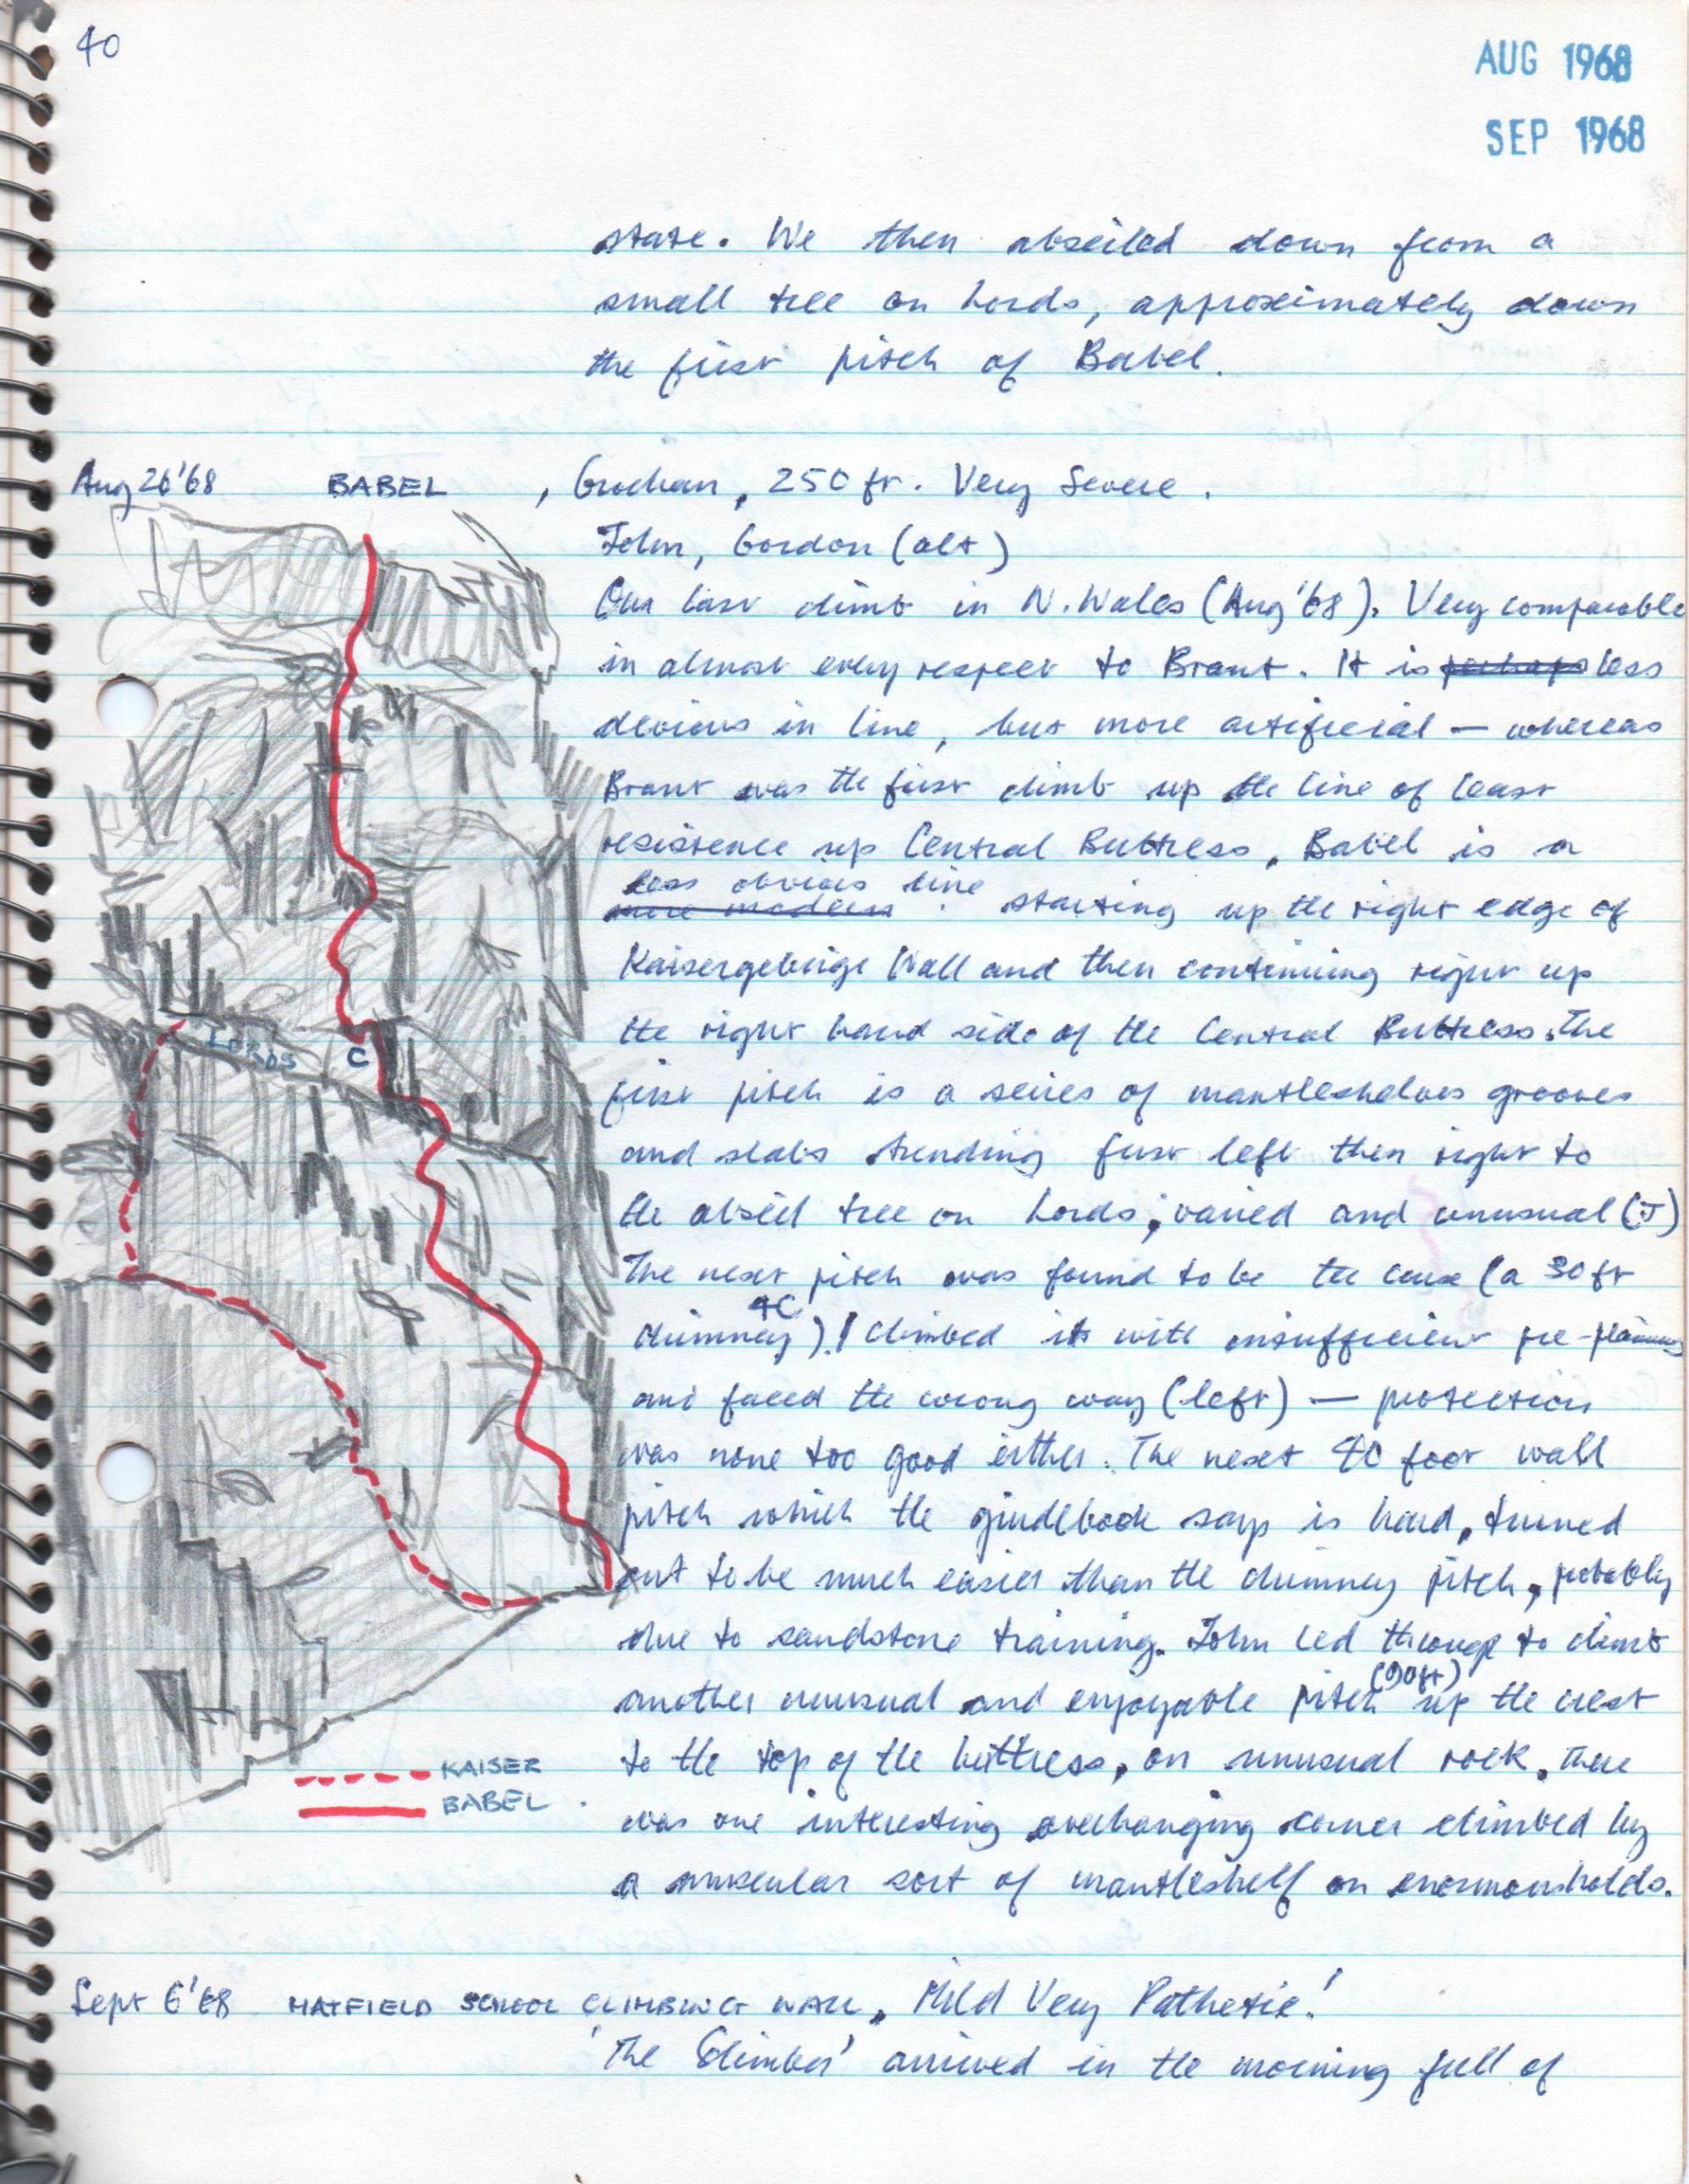 40
AUG 1968
SEP 1968
state. We then abseiled down from a
small tree on Lords, approximately down
the first pitch of Babel.
Aug 26'68 BABEL, Grochan, 250 ft. Very Severe.
John, Gordon (alt)
Our last climb in N. Wales (Aug '68). Very comparable
in almost every respect to Brant. It is perhaps less
devious in line, but more artificial — whereas
Brant was the first climb up the line of least
resistence up Central Buttress, Babel is a
less obvious line
more modern . starting up the right edge of
Kaisergebirge Wall and then continuing right up
the right hand side of the Central Buttress. The
first pitch is a series of mantleshelves grooves
and slabs trending first left then right to
the abseil tree on Lords, varied and unusual (J)
The next pitch was found to be the crux (a 30 ft
4C
chimney). I climbed it with insufficient pre-planning
and faced the wrong way (left) — protection
was none too good either. The next 40 foot wall
pitch which the guidebook says is hard, turned
out to be much easier than the chimney pitch, probably
due to sandstone training. John led through to climb
(90ft)
another unusual and enjoyable pitch up the crest
to the top of the buttress, on unusual rock. There
was one interesting overhanging corner climbed by
a muscular sort of mantleshelf on enormous holds.
LORDS
C
KAISER
BABEL
Sept 6'68 HATFIELD SCHOOL CLIMBING WALL, Mild Very Pathetic!
'The Climber' arrived in the morning full of